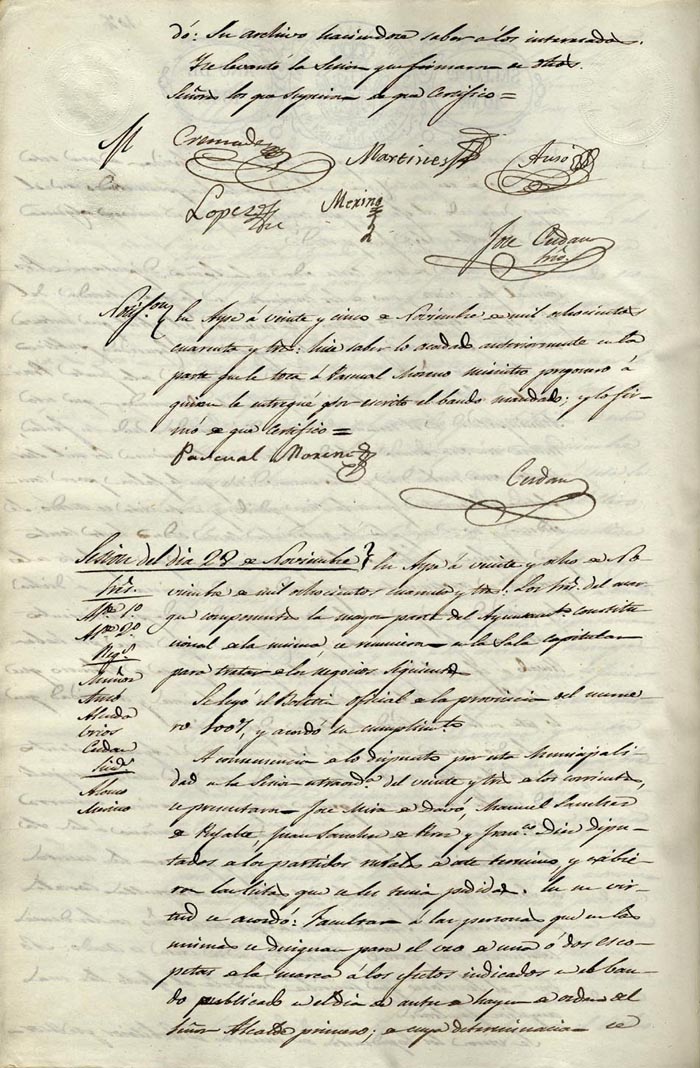 dó: Su archivo haciendose saber á los interesados.
Y se levantó la Sesion que firmaron de dhos
Señores los que supieron de que Certifico =
Cremades Martinez Auso
Lopez Merino
Jose Cerdan
Srio
Notifon En Aspe á veinte y cinco de Noviembre de mil ochocientos
cuarenta y tres: hice saber lo acordado anteriormente en la
parte que le toca á Pascual Moreno ministro pregonero á
quien le entregué por escrito el bando mandado; y lo fir-
mó de que Certifico =
Pascual Moreno
Cerdan
Sesion del dia 28 de Noviembre En Aspe á veinte y ocho de No-
viembre de mil ochocientos cuarenta y tres: Los Sres. del marg.
que componen la mayor parte del Ayuntamto. constitu
cional de la misma se reunieron en la Sala capitular
para tratar de los negocios siguientes
Se leyó el Boletin oficial de la provincia del nume-
ro 1007, y acordó su cumplimto.
A consecuencia de lo dispuesto por esta Municipali-
dad en la Sesion estraorda. del veinte y tres de los corrientes,
se presentaron Jose Mira de Davó, Manuel Sanchez
de Rifalte, Juan Sanchez de Perez y Franco. Diez dipu-
tados de los partidos rurales de este termino, y exibie-
ron las listas que se les tenia pedidas. En su vir-
tud se acordó: Facultar á las personas que en las
mismas se designan para el uso de una ó dos esco-
petas de la marca á los efectos indicados en el ban-
do publicado en el dia de antes de hayer de orden del
Señor Alcalde primero; de cuya determinacion se
Sres.
Alce. 1o.
Alce. 2o.
Regs.
Muñoz
Auso
Alcolea
Orios
Cerdan
Sinds.
Alonso
Merino